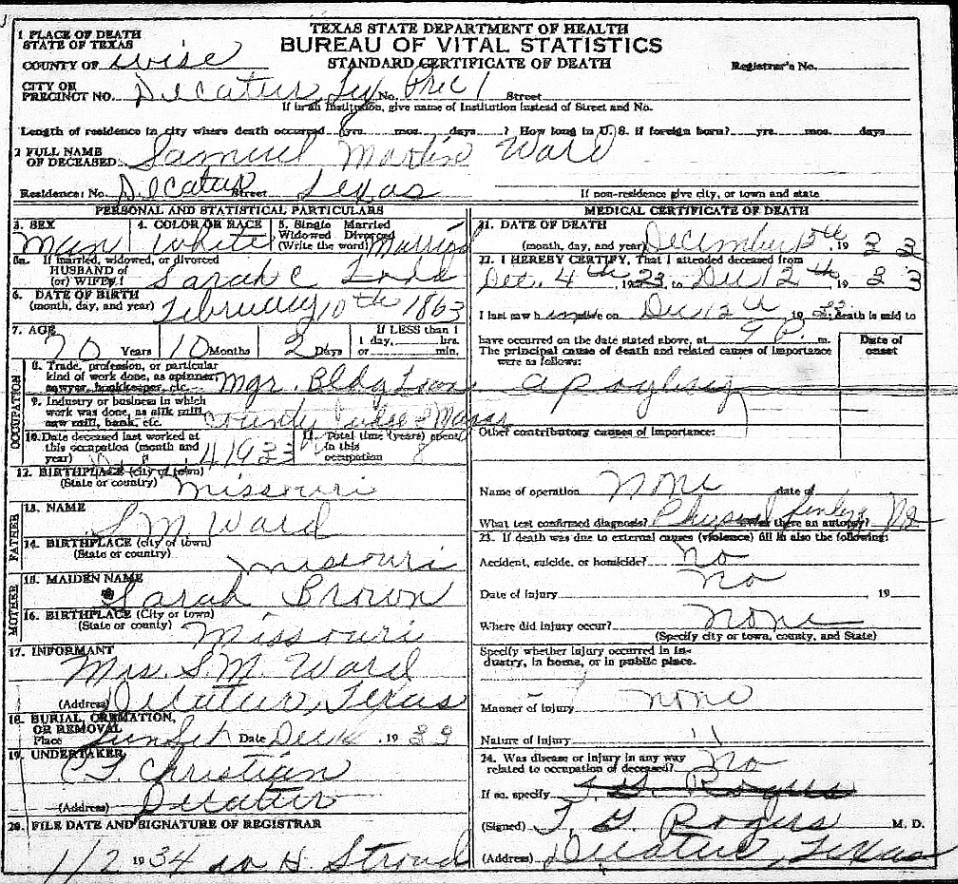 TEXAS STATE DEPARTMENT OF HEALTH
BUREAU OF VITAL STATISTICS
STANDARD CERTIFICATE OF DEATH
1 PLACE OF DEATH
STATE OF TEXAS
COUNTY OF Wise
Registrar's No.
CITY OR
PRECINCT NO. Decatur, Tex No. Prec 1 Street
If in an Institution, give name of Institution instead of Street and No.
Length of residence in city where death occurred 8 yrs. mos. days ? How long in U. S. if foreign born? yrs. mos. days
2 FULL NAME
OF DECEASED: Samuel Martin Ward
Residence: No. Decatur Street Texas If non-residence give city, or town and state
PERSONAL AND STATISTICAL PARTICULARS
3. SEX Man
4. COLOR OR RACE White
5. Single Married
Widowed Divorced
(Write the word) Married
5a. If married, widowed, or divorced
HUSBAND of
(or) WIFE of Sarah C
6. DATE OF BIRTH
(month, day, and year) February 10th 1863
7. AGE 70 Years 10 Months 2 Days
If LESS than 1
1 day, hrs.
or min.
OCCUPATION
8. Trade, profession, or particular
kind of work done, as spinner,
sawyer, bookkeeper, etc. Mgr. Bldg Loan
9. Industry or business in which
work was done, as silk mill,
saw mill, bank, etc. County Judge
10. Date deceased last worked at
this occupation (month and
year) 4 1933
11. Total time (years) spent
in this
occupation 8
12. BIRTHPLACE (city of town)
(State or country) Missouri
FATHER
13. NAME S M Ward
14. BIRTHPLACE (city of town)
(State or country) Missouri
MOTHER
15. MAIDEN NAME
Sarah Brown
16. BIRTHPLACE (City or town)
(State or county) Missouri
17. INFORMANT
Mrs. S. M. Ward
(Address) Decatur, Texas
18. BURIAL, CREMATION,
OR REMOVAL
Place Sunset Date Dec 19 33
19. UNDERTAKER
Christian
(Address) Decatur
20. FILE DATE AND SIGNATURE OF REGISTRAR
1/2 1934 H. Stroud
MEDICAL CERTIFICATE OF DEATH
21. DATE OF DEATH
(month, day, and year) December 12th 19 33
22. I HEREBY CERTIFY, That I attended deceased from
Oct. 4th 1933, to Dec 12th 19 33
I last saw him alive on Dec 12th 19 33, death is said to
have occurred on the date stated above, at 9 P. m.
The principal cause of death and related causes of importance
were as follows:
Date of
onset
Other contributory causes of importance:
Name of operation None date of
What test confirmed diagnosis? was there an autopsy? No
23. If death was due to external causes (violence) fill in also the following:
Accident, suicide, or homicide? No
Date of injury No 19
Where did injury occur? none
(Specify city or town, county, and State)
Specify whether injury occurred in in-
dustry, in home, or in public place.
Manner of injury none
Nature of injury "
24. Was disease or injury in any way
related to occupation of deceased? No
If so, specify
(Signed) T. G. Rogers M. D.
(Address) Decatur, Texas